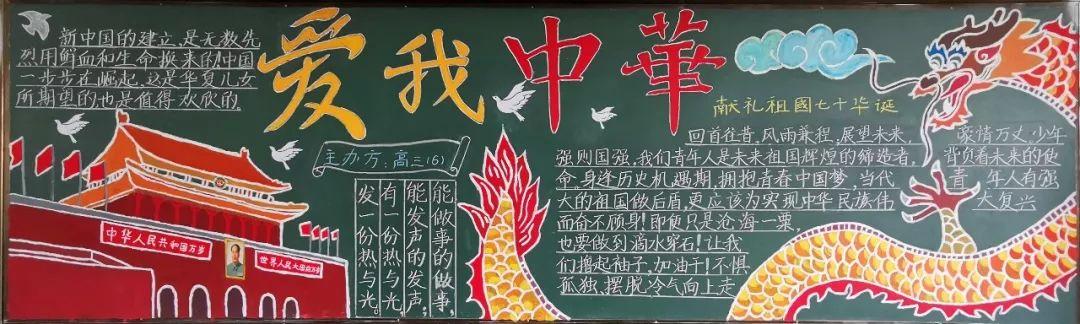 新中国的建立,是无数先
烈用鲜血和生命换来的!中国
一步步在崛起,这是华夏儿女
所期望的,也是值得欢欣的.
爱我中華
献礼祖國七十华诞
主办方:高三(6)
能做事的做事,
能发声的发声,
有一份热与光,
发一份热与光。
中华人民共和国万岁
世界人民大团结万岁
回首往昔,风雨兼程,展望未来,豪情万丈,少年
强则国强.我们青年人是未来祖国辉煌的缔造者,背负着未来的使
命.身逢历史机遇期,拥抱青春中国梦,当代青年人有强
大的祖国做后盾,更应该为实现中华民族伟大复兴
而奋不顾身!即使只是沧海一粟,
也要做到滴水穿石!让我
们撸起袖子,加油干!不惧
孤独,摆脱冷气,向上走